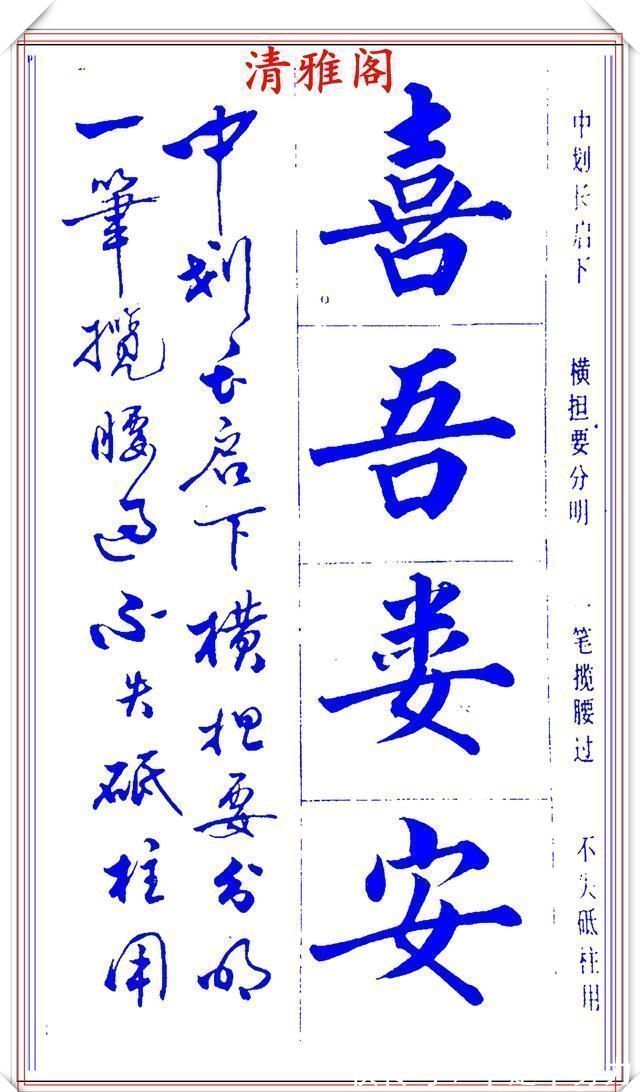 清雅阁
中划长启下
横担要分明
一笔揽腰过
不失砥柱用
喜
吾
娄
安
中划长启下横担要分明
一筆攬腰過不失砥柱用